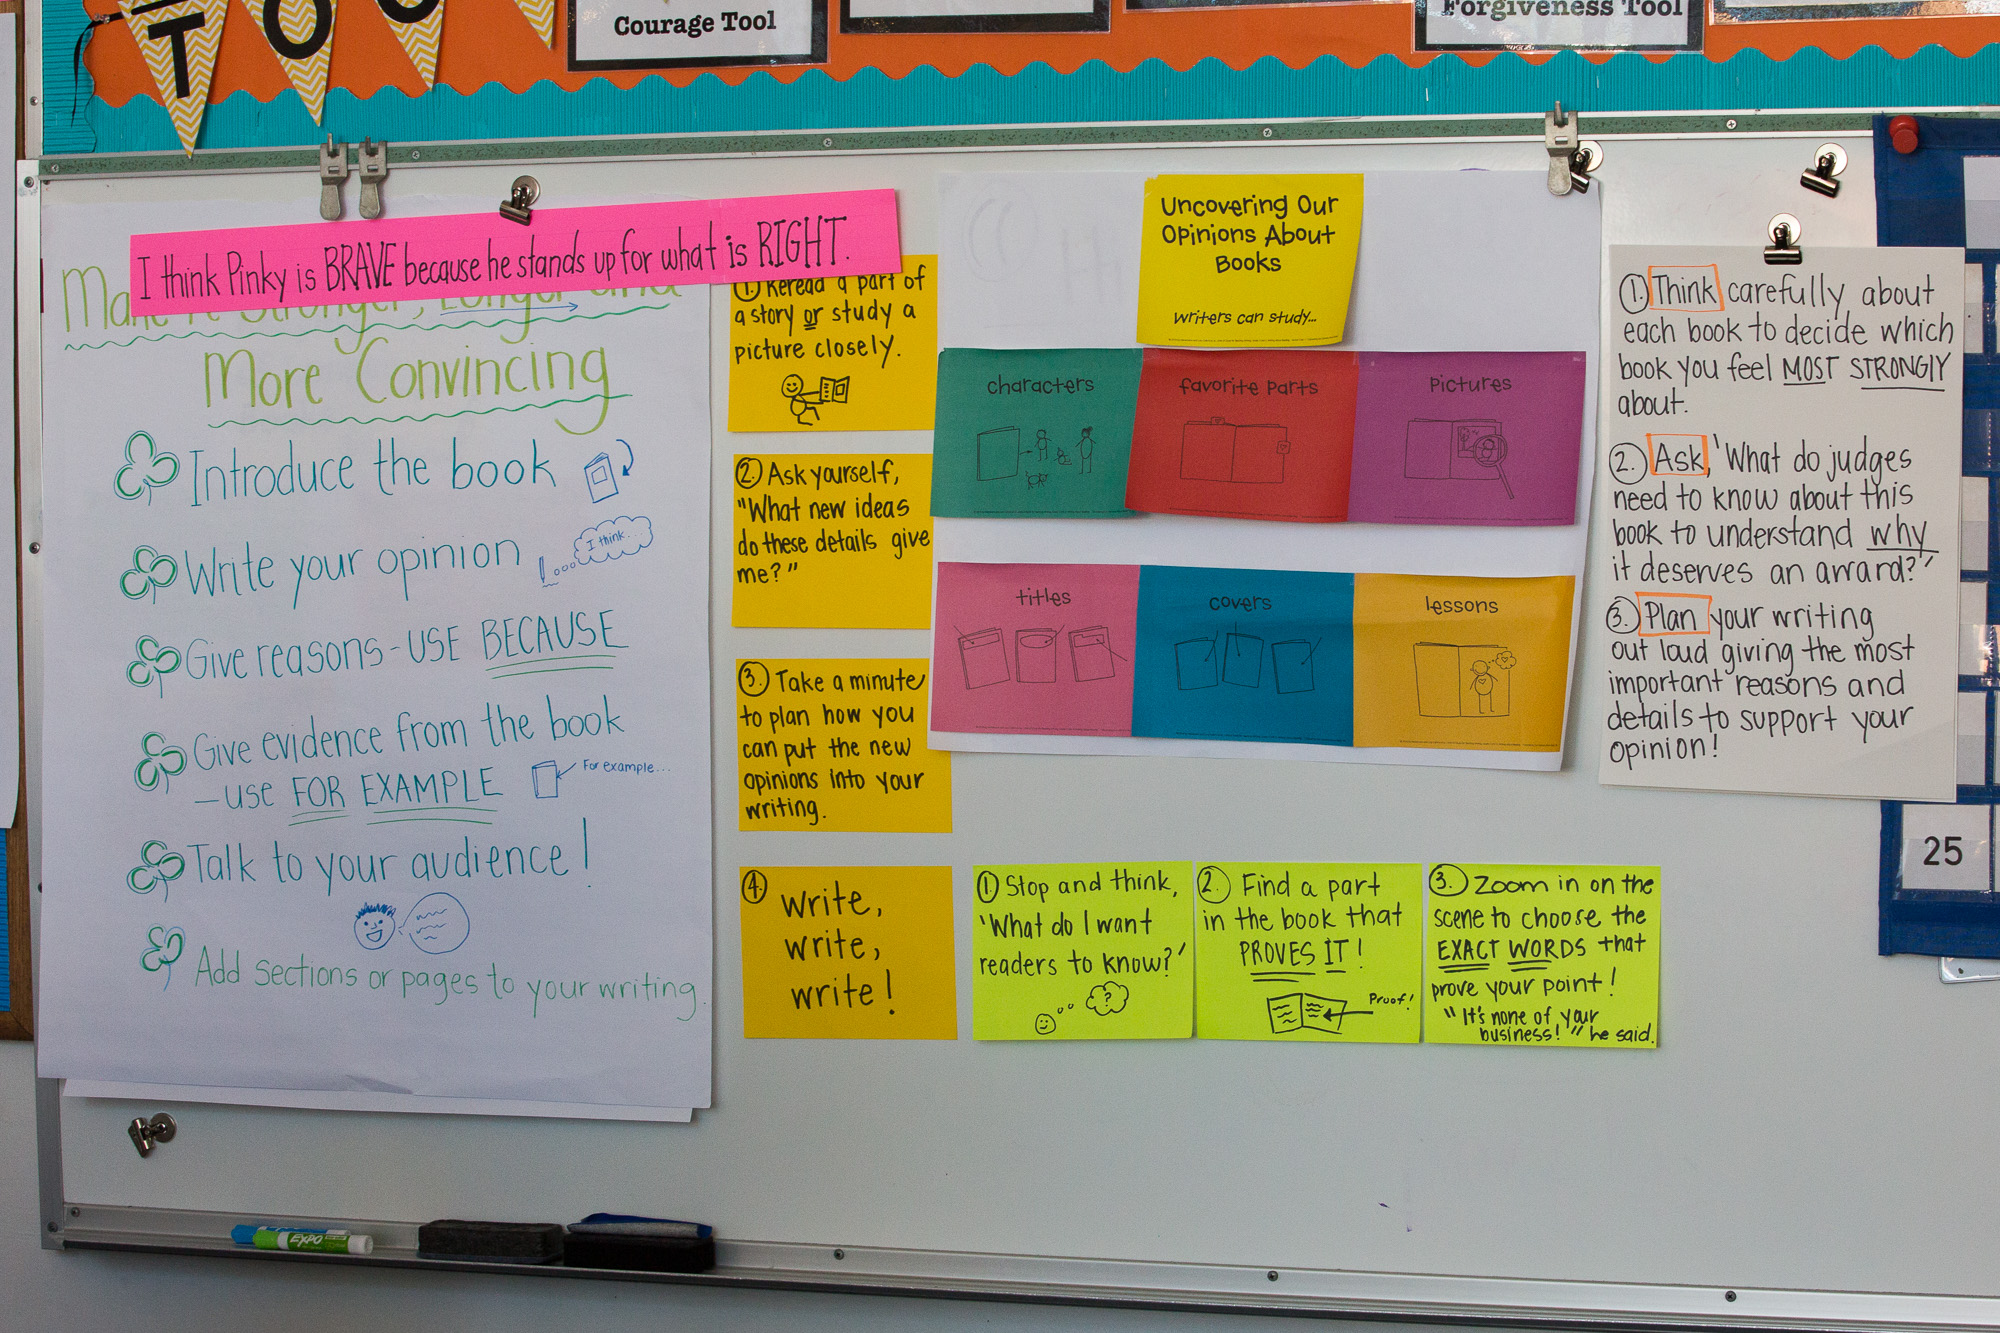 TO
Courage Tool
Forgiveness Tool
I think Pinky is BRAVE because he stands up for what is RIGHT.
More Convincing
Introduce the book
Write your opinion
I think...
Give reasons - USE BECAUSE
Give evidence from the book
- use FOR EXAMPLE
For example...
Talk to your audience!
Add sections or pages to your writing.
1. Reread a part of
a story or study a
picture closely.
2. Ask yourself,
"What new ideas
do these details give
me?"
3. Take a minute
to plan how you
can put the new
opinions into your
writing.
4. Write,
write,
write!
Uncovering Our
Opinions About
Books
Writers can study...
characters
favorite parts
pictures
titles
covers
lessons
1. Stop and think,
'What do I want
readers to know?'
?
2. Find a part
in the book that
PROVES IT!
Proof!
3. Zoom in on the
scene to choose the
EXACT WORDS that
prove your point!
"It's none of your
business!" he said.
1. Think carefully about
each book to decide which
book you feel MOST STRONGLY
about.
2. Ask, 'What do judges
need to know about this
book to understand why
it deserves an award?'
3. Plan your writing
out loud giving the most
important reasons and
details to support your
opinion!
25
EXPO